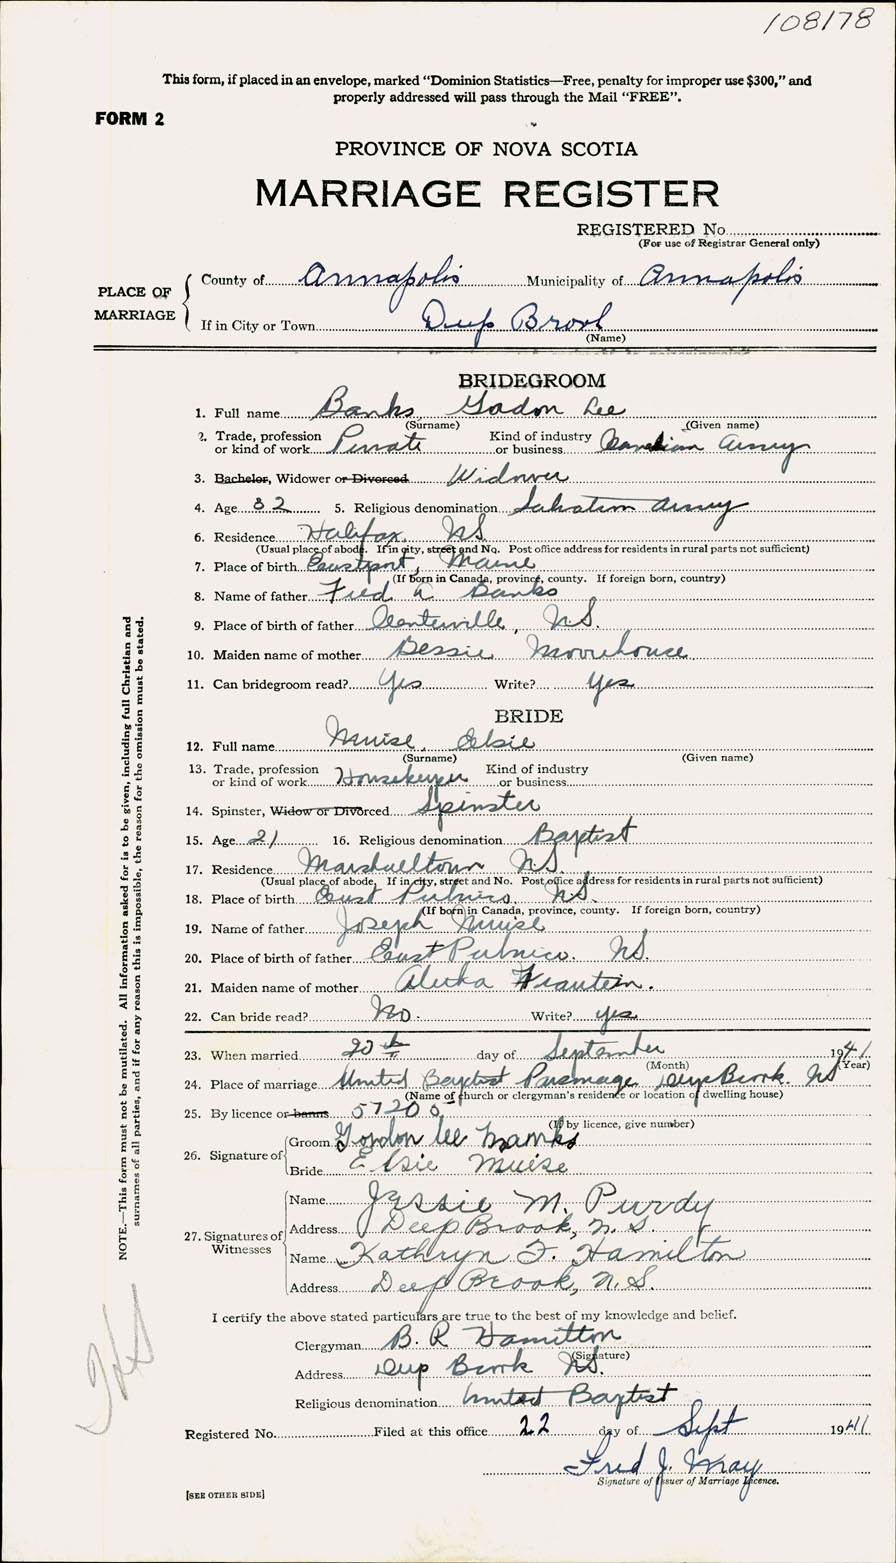 108178
This form, if placed in an envelope, marked "Dominion Statistics—Free, penalty for improper use $300," and
properly addressed will pass through the Mail "FREE".
FORM 2
PROVINCE OF NOVA SCOTIA
MARRIAGE REGISTER
REGISTERED No.
(For use of Registrar General only)
PLACE OF MARRIAGE
County of Annapolis Municipality of Annapolis
If in City or Town Deep Brook
(Name)
BRIDEGROOM
1. Full name Banks, Gordon Lee
(Surname) (Given name)
2. Trade, profession or kind of work Private Kind of industry or business Canadian Army
3. Bachelor, Widower or Divorced Widower
4. Age 32 5. Religious denomination Salvation Army
6. Residence Halifax, NS
(Usual place of abode. If in city, street and No. Post office address for residents in rural parts not sufficient)
7. Place of birth Eastport, Maine
(If born in Canada, province, county. If foreign born, country)
8. Name of father Fred A Banks
9. Place of birth of father Centerville, N.S.
10. Maiden name of mother Bessie Moorehouse
11. Can bridegroom read? Yes Write? Yes
BRIDE
12. Full name Muise, Elsie
(Surname) (Given name)
13. Trade, profession or kind of work Housekeeper Kind of industry or business
14. Spinster, Widow or Divorced Spinster
15. Age 21 16. Religious denomination Baptist
17. Residence Marshalltown NS.
(Usual place of abode. If in city, street and No. Post office address for residents in rural parts not sufficient)
18. Place of birth East Pubnico NS.
(If born in Canada, province, county. If foreign born, country)
19. Name of father Joseph Muise
20. Place of birth of father East Pubnico. NS.
21. Maiden name of mother
22. Can bride read? No. Write? yes
23. When married 20th day of September 1941
(Month) (Year)
24. Place of marriage United Baptist Parsonage, Deep Brook. NS
(Name of church or clergyman's residence or location of dwelling house)
25. By licence or banns 57205
(If by licence, give number)
26. Signature of
Groom Gordon Lee Banks
Bride Elsie Muise
27. Signatures of Witnesses
Name Jessie M. Purdy
Address Deep Brook, N. S.
Name Kathryn F. Hamilton
Address Deep Brook, N. S.
I certify the above stated particulars are true to the best of my knowledge and belief.
Clergyman B. R Hamilton
(Signature)
Address Deep Brook NS.
Religious denomination United Baptist
Registered No. Filed at this office 22 day of Sept 1941
Fred J. May
Signature of Issuer of Marriage Licence.
[SEE OTHER SIDE]
NOTE.—This form must not be mutilated. All information asked for is to be given, including full Christian and
surnames of all parties, and if for any reason this is impossible, the reason for the omission must be stated.